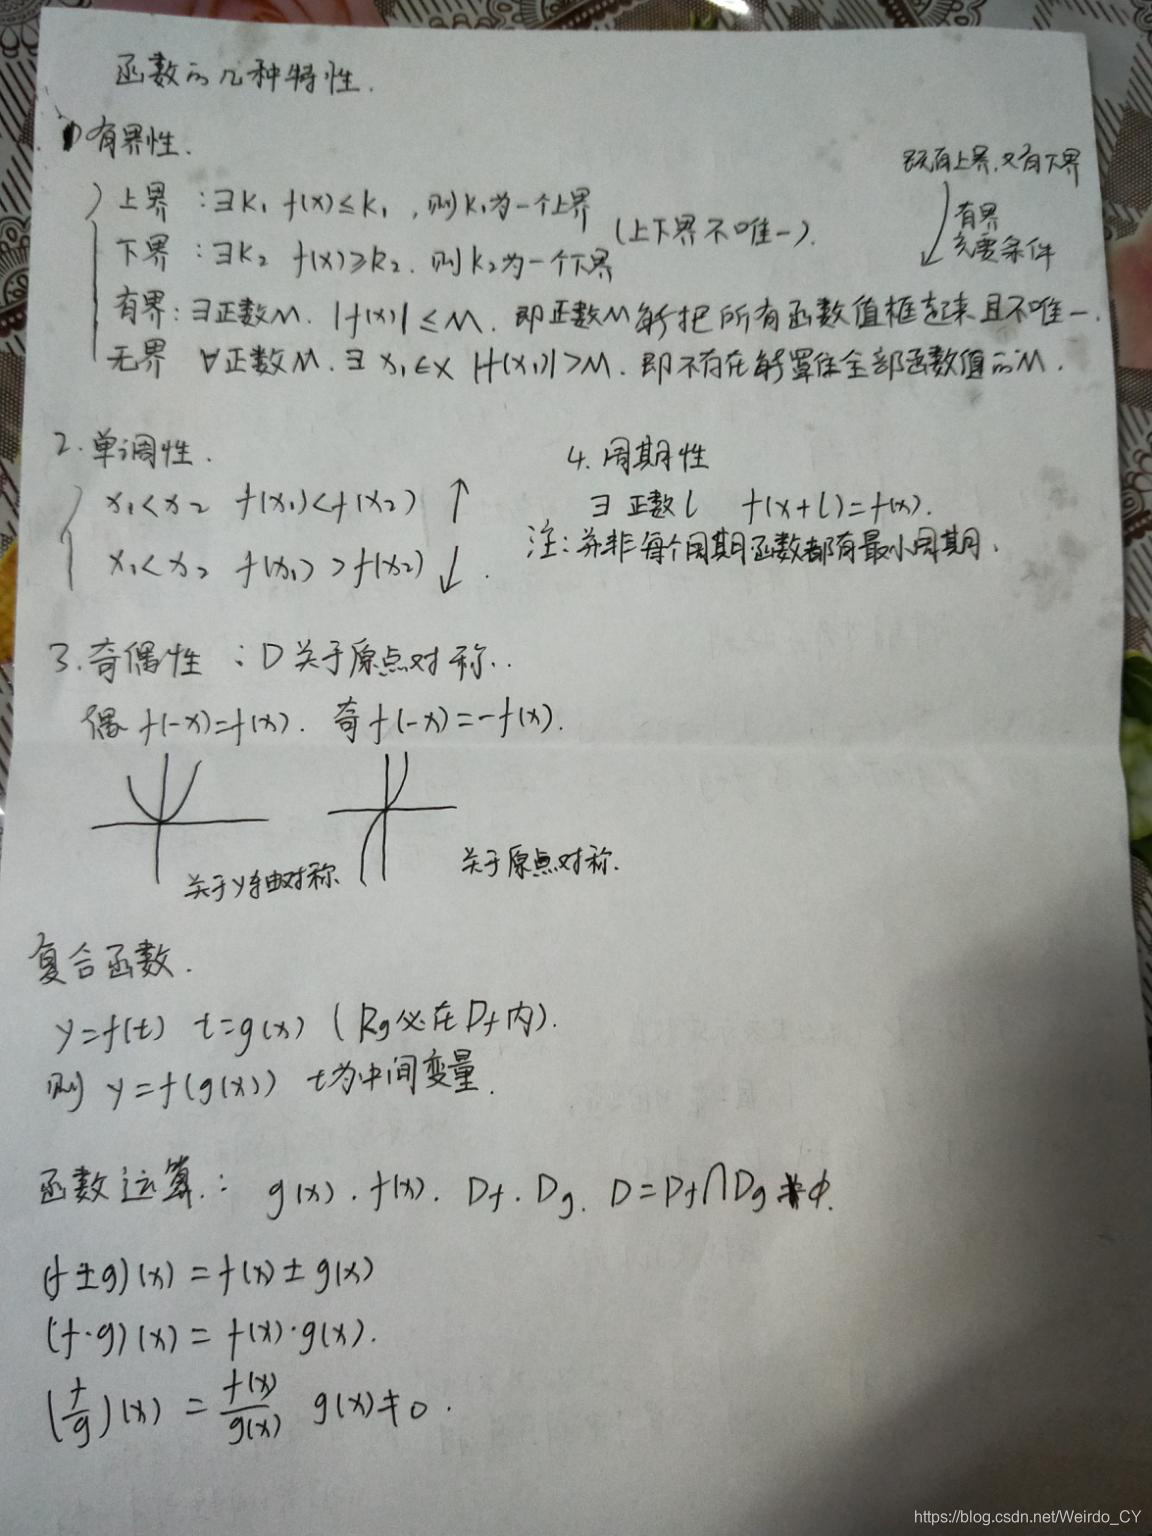 函数的几种特性.
1)有界性.
上界 : ∃K₁ f(x)≤K₁ ,则K₁为一个上界
下界 : ∃K₂ f(x)≥K₂. 则K₂为一个下界
(上下界不唯一).
既有上界,又有下界
有界
充要条件
有界: ∃正数M. |f(x)|≤M. 即正数M能把所有函数值框起来且不唯一.
无界 ∀正数M. ∃x₁∈X |f(x₁)|>M. 即不存在能罩住全部函数值的M.
2.单调性.
x₁<x₂ f(x₁)<f(x₂) ↑
x₁<x₂ f(x₁)>f(x₂) ↓.
4.周期性
∃正数l f(x+l)=f(x).
注:并非每个周期函数都有最小周期.
3.奇偶性 : D关于原点对称..
偶f(-x)=f(x). 奇f(-x)=-f(x).
关于y轴对称.
关于原点对称.
复合函数.
y=f(t) t=g(x) (Rg必在Df内).
则 y=f(g(x)) t为中间变量.
函数运算.: g(x).f(x). Df.Dg. D=Df∩Dg≠φ.
(f±g)(x)=f(x)±g(x)
(f·g)(x)=f(x)·g(x).
(f/g)(x)=f(x)/g(x) g(x)≠0.
https://blog.csdn.net/Weirdo_CY